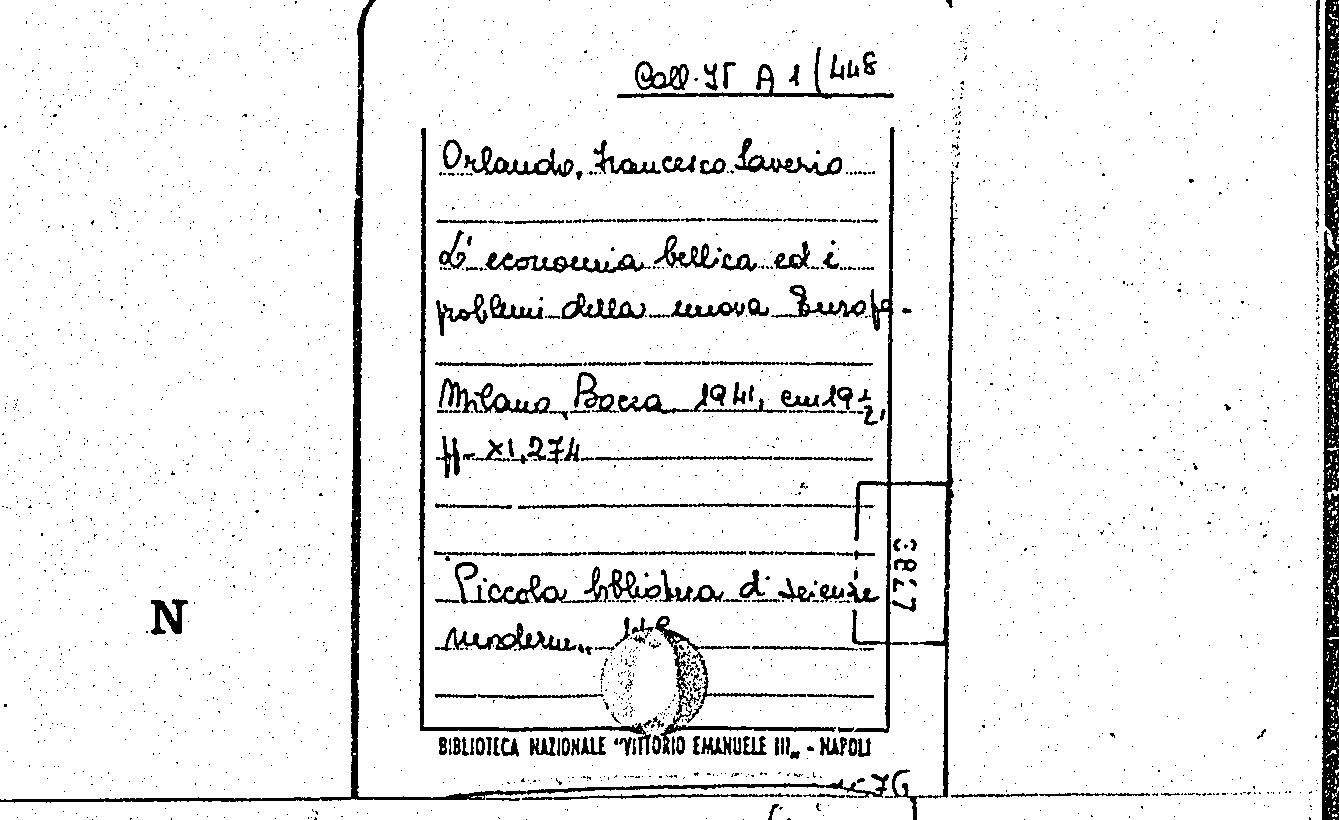 Coll. It A 1 (448
Orlando, Francesco Saverio
L'economia bellica ed i
problemi della nuova Europa.
Milano, Bocca 1941, cm 19 1/2,
pp. XI, 274
3827
Piccola biblioteca di scienze
moderne,,
N
BIBLIOTECA NAZIONALE "VITTORIO EMANUELE III„ - NAPOLI
76